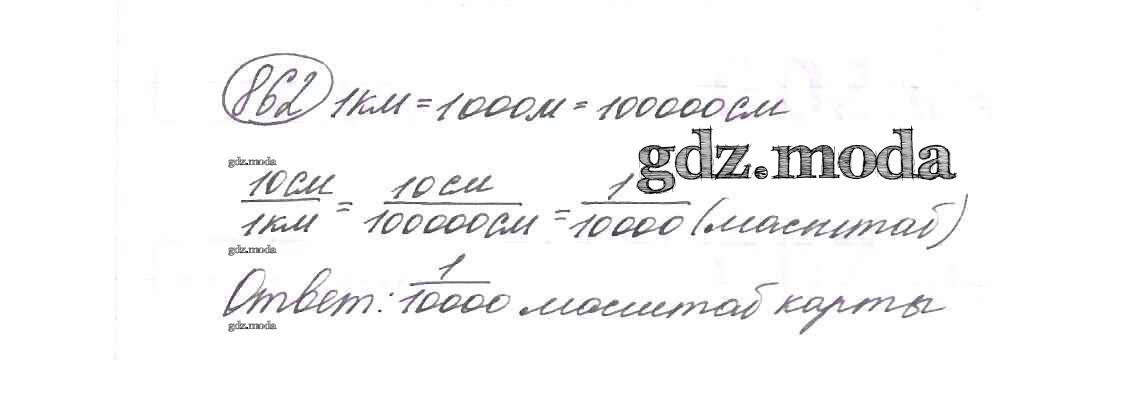 862 1км = 1000м = 100000см
gdz.moda
gdz.moda
10см/1км = 10см/100000см = 1/10000 (масштаб)
gdz.moda
Ответ: 1/10000 масштаб карты
gdz.moda